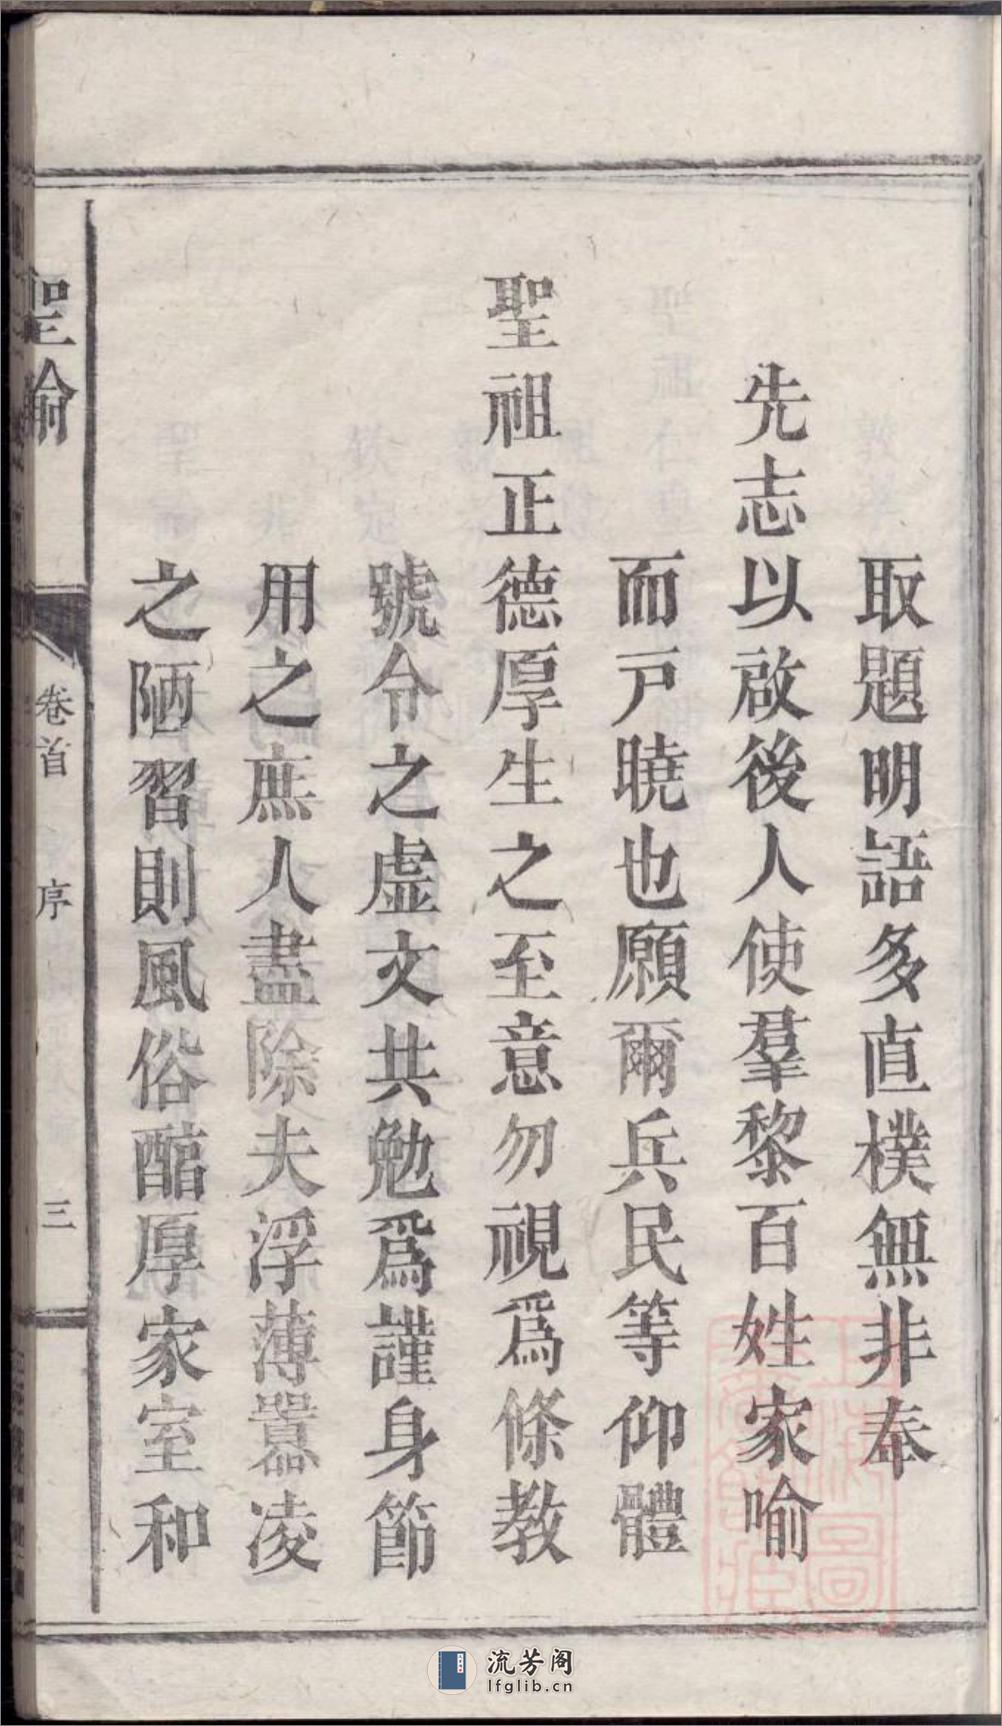 取題明語多直樸無非奉
先志以啟後人使羣黎百姓家喻
而戸曉也願爾兵民等仰體
聖祖正德厚生之至意勿視爲條教
號令之虛文共勉爲謹身節
用之庶人盡除夫浮薄囂凌
之陋習則風俗醕厚家室和
聖諭
卷首
序
三
流芳阁
lfglib.cn